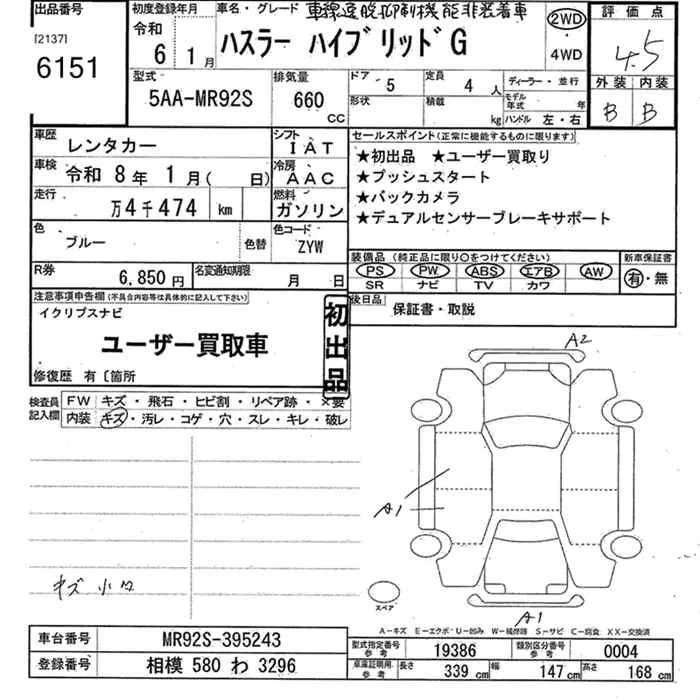 出品番号
[2137]
6151
初度登録年月
令和
6年 1月
車名・グレード 車線逸脱抑制機能非装着車
ハスラー ハイブリッドG
2WD
4WD
評価点
4.5
外装 内装
B B
型式
5AA-MR92S
排気量
660 CC
ドア 5
定員 4人
形状
積載 kg
ディーラー・並行
モデル年式 年
ハンドル 左・右
車歴 レンタカー
シフト IAT
車検 令和 8年 1月( 日)
冷房 AAC
走行 万4千474 km
燃料 ガソリン
色 ブルー
色替
色コード ZYW
R券 6,850円
名変通知期限 月 日
セールスポイント(正常に機能するものに限ります)
★初出品 ★ユーザー買取り
★プッシュスタート
★バックカメラ
★デュアルセンサーブレーキサポート
装備品(純正品に限り○をつけてください)
PS PW ABS エアB AW
SR ナビ TV カワ
新車保証書
有・無
後日品 保証書・取説
注意事項申告欄(不具合内容等は具体的に記入して下さい)
イクリプスナビ
ユーザー買取車
初出品
修復歴 有〔箇所
検査員記入欄
FW キズ・飛石・ヒビ割・リペア跡・×要
内装 キズ・汚レ・コゲ・穴・スレ・キレ・破レ
キズ 小口
A2
A1
スペア
A1
A-キズ E-エクボ U-凹み W-補修跡 S-サビ C-腐食 XX-交換済
車台番号 MR92S-395243
登録番号 相模 580 わ 3296
型式指定番号 参考 19386
類別区分番号 参考 0004
車庫証明用 参考 長さ 339 cm 幅 147 cm 高さ 168 cm